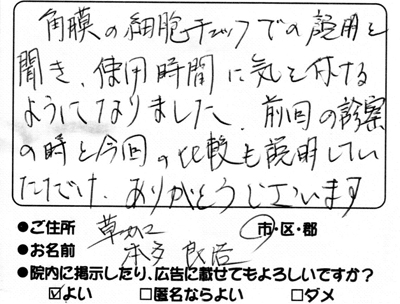 角膜の細胞チェックでの説明を
聞き、使用時間に気を付ける
ようになりました。前回の診察
の時と今回の比較も説明してい
ただけ、ありがとうございます
●ご住所 草加 市・区・郡
●お名前 本多
●院内に掲示したり、広告に載せてもよろしいですか?
☑よい □匿名ならよい □ダメ